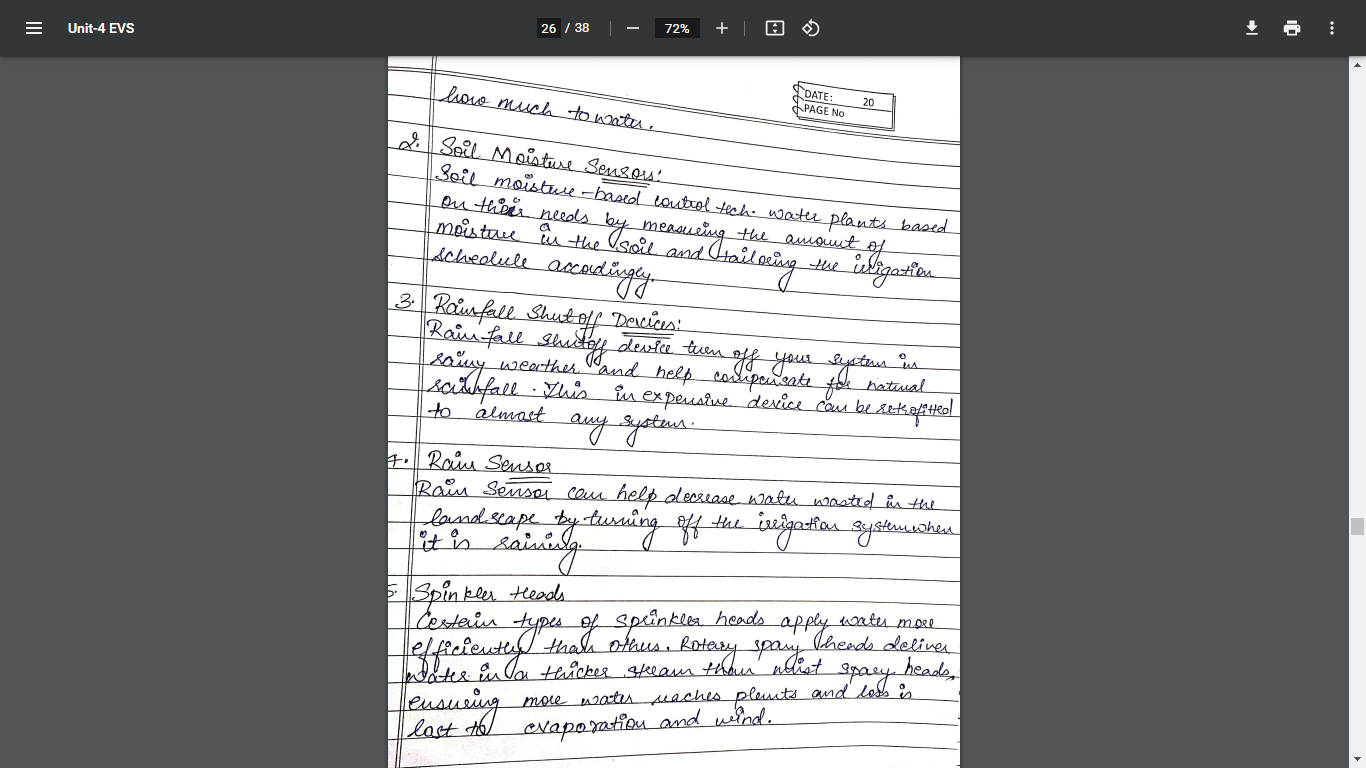 Unit-4 EVS
26 / 38
72%
DATE: 20
PAGE No
how much to water.
2. Soil Moisture Sensors:
Soil moisture-based control tech. water plants based
on their needs by measuring the amount of
moisture in the soil and tailoring the irrigation
schedule accordingly.
3. Rainfall Shut off Devices:
Rain-fall shutoff device turn off your system in
rainy weather and help compensate for natural
rainfall. This in expensive device can be retrofitted
to almost any system.
4. Rain Sensor
Rain Sensor can help decrease water wasted in the
landscape by turning off the irrigation system when
it is raining.
5. Spinkler Heads
Certain types of sprinkler heads apply water more
efficiently than others. Rotary spary heads deliver
water in a thicker stream than mist spary heads,
ensuring more water reaches plants and less is
last to evaporation and wind.